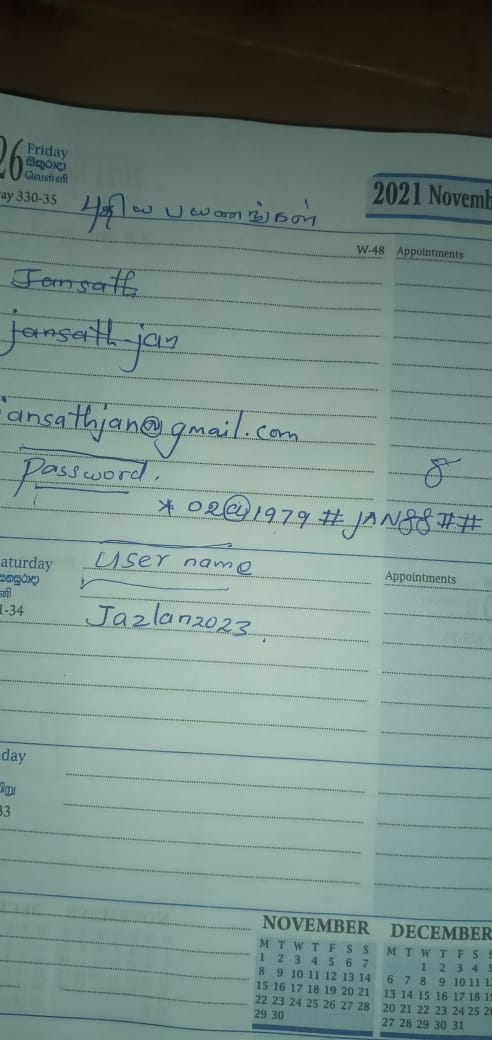 26 Friday
සිකුරාදා
வெள்ளி
ay 330-35
2021 Novemb
புதிய பயணங்கள்
W-48 Appointments
Jansath
jansath jan
jansathjan@gmail.com
Password.
8
* 02@1979#JAN88##
aturday
User name
Appointments
1-34
Jazlan2023.
day
33
NOVEMBER
M T W T F S S
1 2 3 4 5 6 7
8 9 10 11 12 13 14
15 16 17 18 19 20 21
22 23 24 25 26 27 28
29 30
DECEMBER
M T W T F S S
1 2 3 4 5
6 7 8 9 10 11 1
13 14 15 16 17 18 1
20 21 22 23 24 25 2
27 28 29 30 31